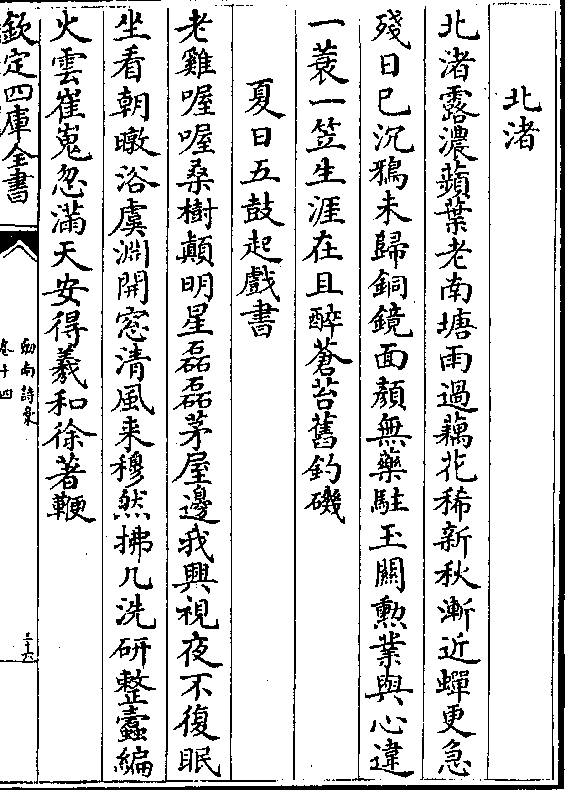 北渚
北渚露濃蘋葉老南塘雨過藕花稀新秋漸近蟬更急
殘日已沉鴉未歸銅鏡面顏無藥駐玉關勲業與心違
一蓑一笠生涯在且醉蒼苔舊釣磯
夏日五鼓起戲書
老雞喔喔桑樹顛明星磊磊茅屋邊我興視夜不復眠
坐看朝暾浴虞淵開窓清風来穆然拂几洗研整蠹編
火雲崔嵬忽滿天安得羲和徐著鞭
欽定四庫全書
劒南詩稾
卷十四
三十六